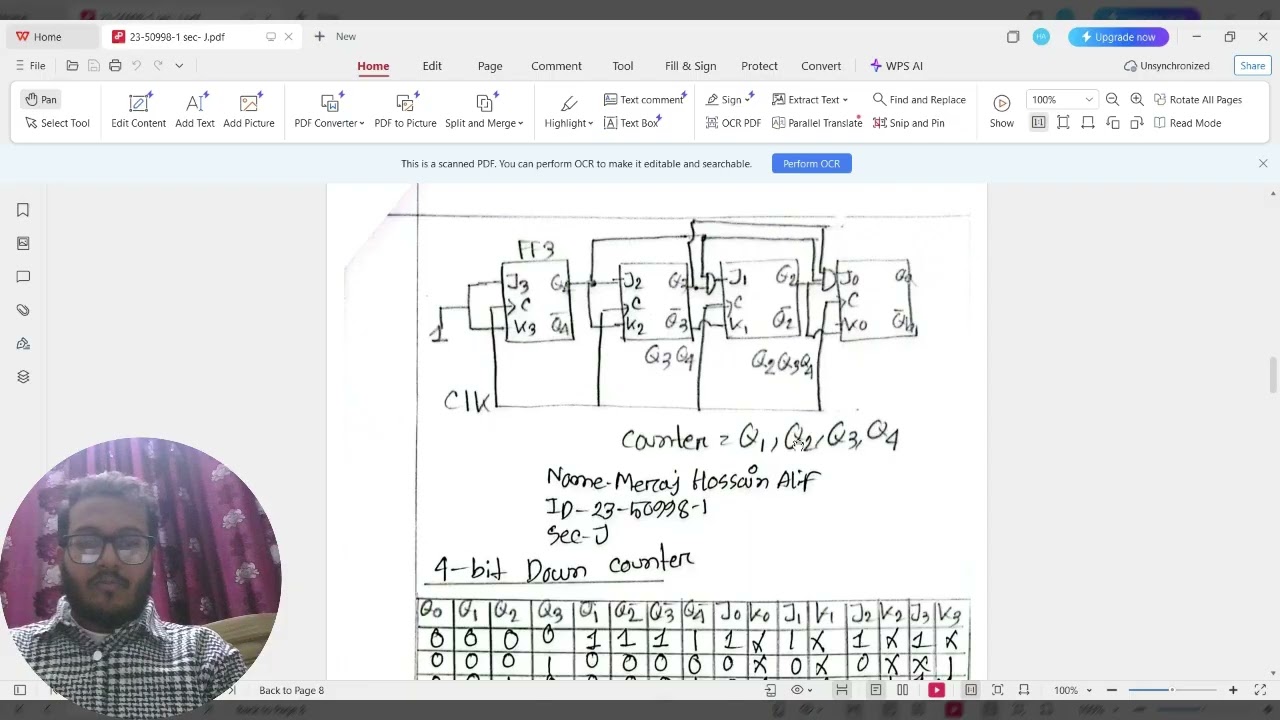 Home
23-50998-1 sec- J.pdf
New
HA
Upgrade now
File
Home
Edit
Page
Comment
Tool
Fill & Sign
Protect
Convert
WPS AI
Unsynchronized
Share
Pan
Select Tool
Edit Content
Add Text
Add Picture
PDF Converter
PDF to Picture
Split and Merge
Highlight
Text comment
Text Box
Sign
OCR PDF
Extract Text
Parallel Translate
Find and Replace
Snip and Pin
Show
100%
Rotate All Pages
Read Mode
This is a scanned PDF. You can perform OCR to make it editable and searchable.
Perform OCR
FF3
J3
C
K3 Q̅4
J2
C
K2 Q̅3
J1 Q2
C
K1 Q̅2
J0
C
K0
1
Q3 Q4
Q2 Q3 Q4
Clk
Counter = Q1, Q2, Q3, Q4
Name-Meraj Hossain Alif
ID-23-50998-1
Sec-J
4-bit Down counter
Q0 Q1 Q2 Q3 Q1 Q2 Q3 Q4 J0 K0 J1 K1 J2 K2 J3 K3
0 0 0 0 1 1 1 1 1 X 1 X 1 X 1 X
0 0 0 1 0 0 0 0 0 X 0 X 0 X X 1
Back to Page 8
100%